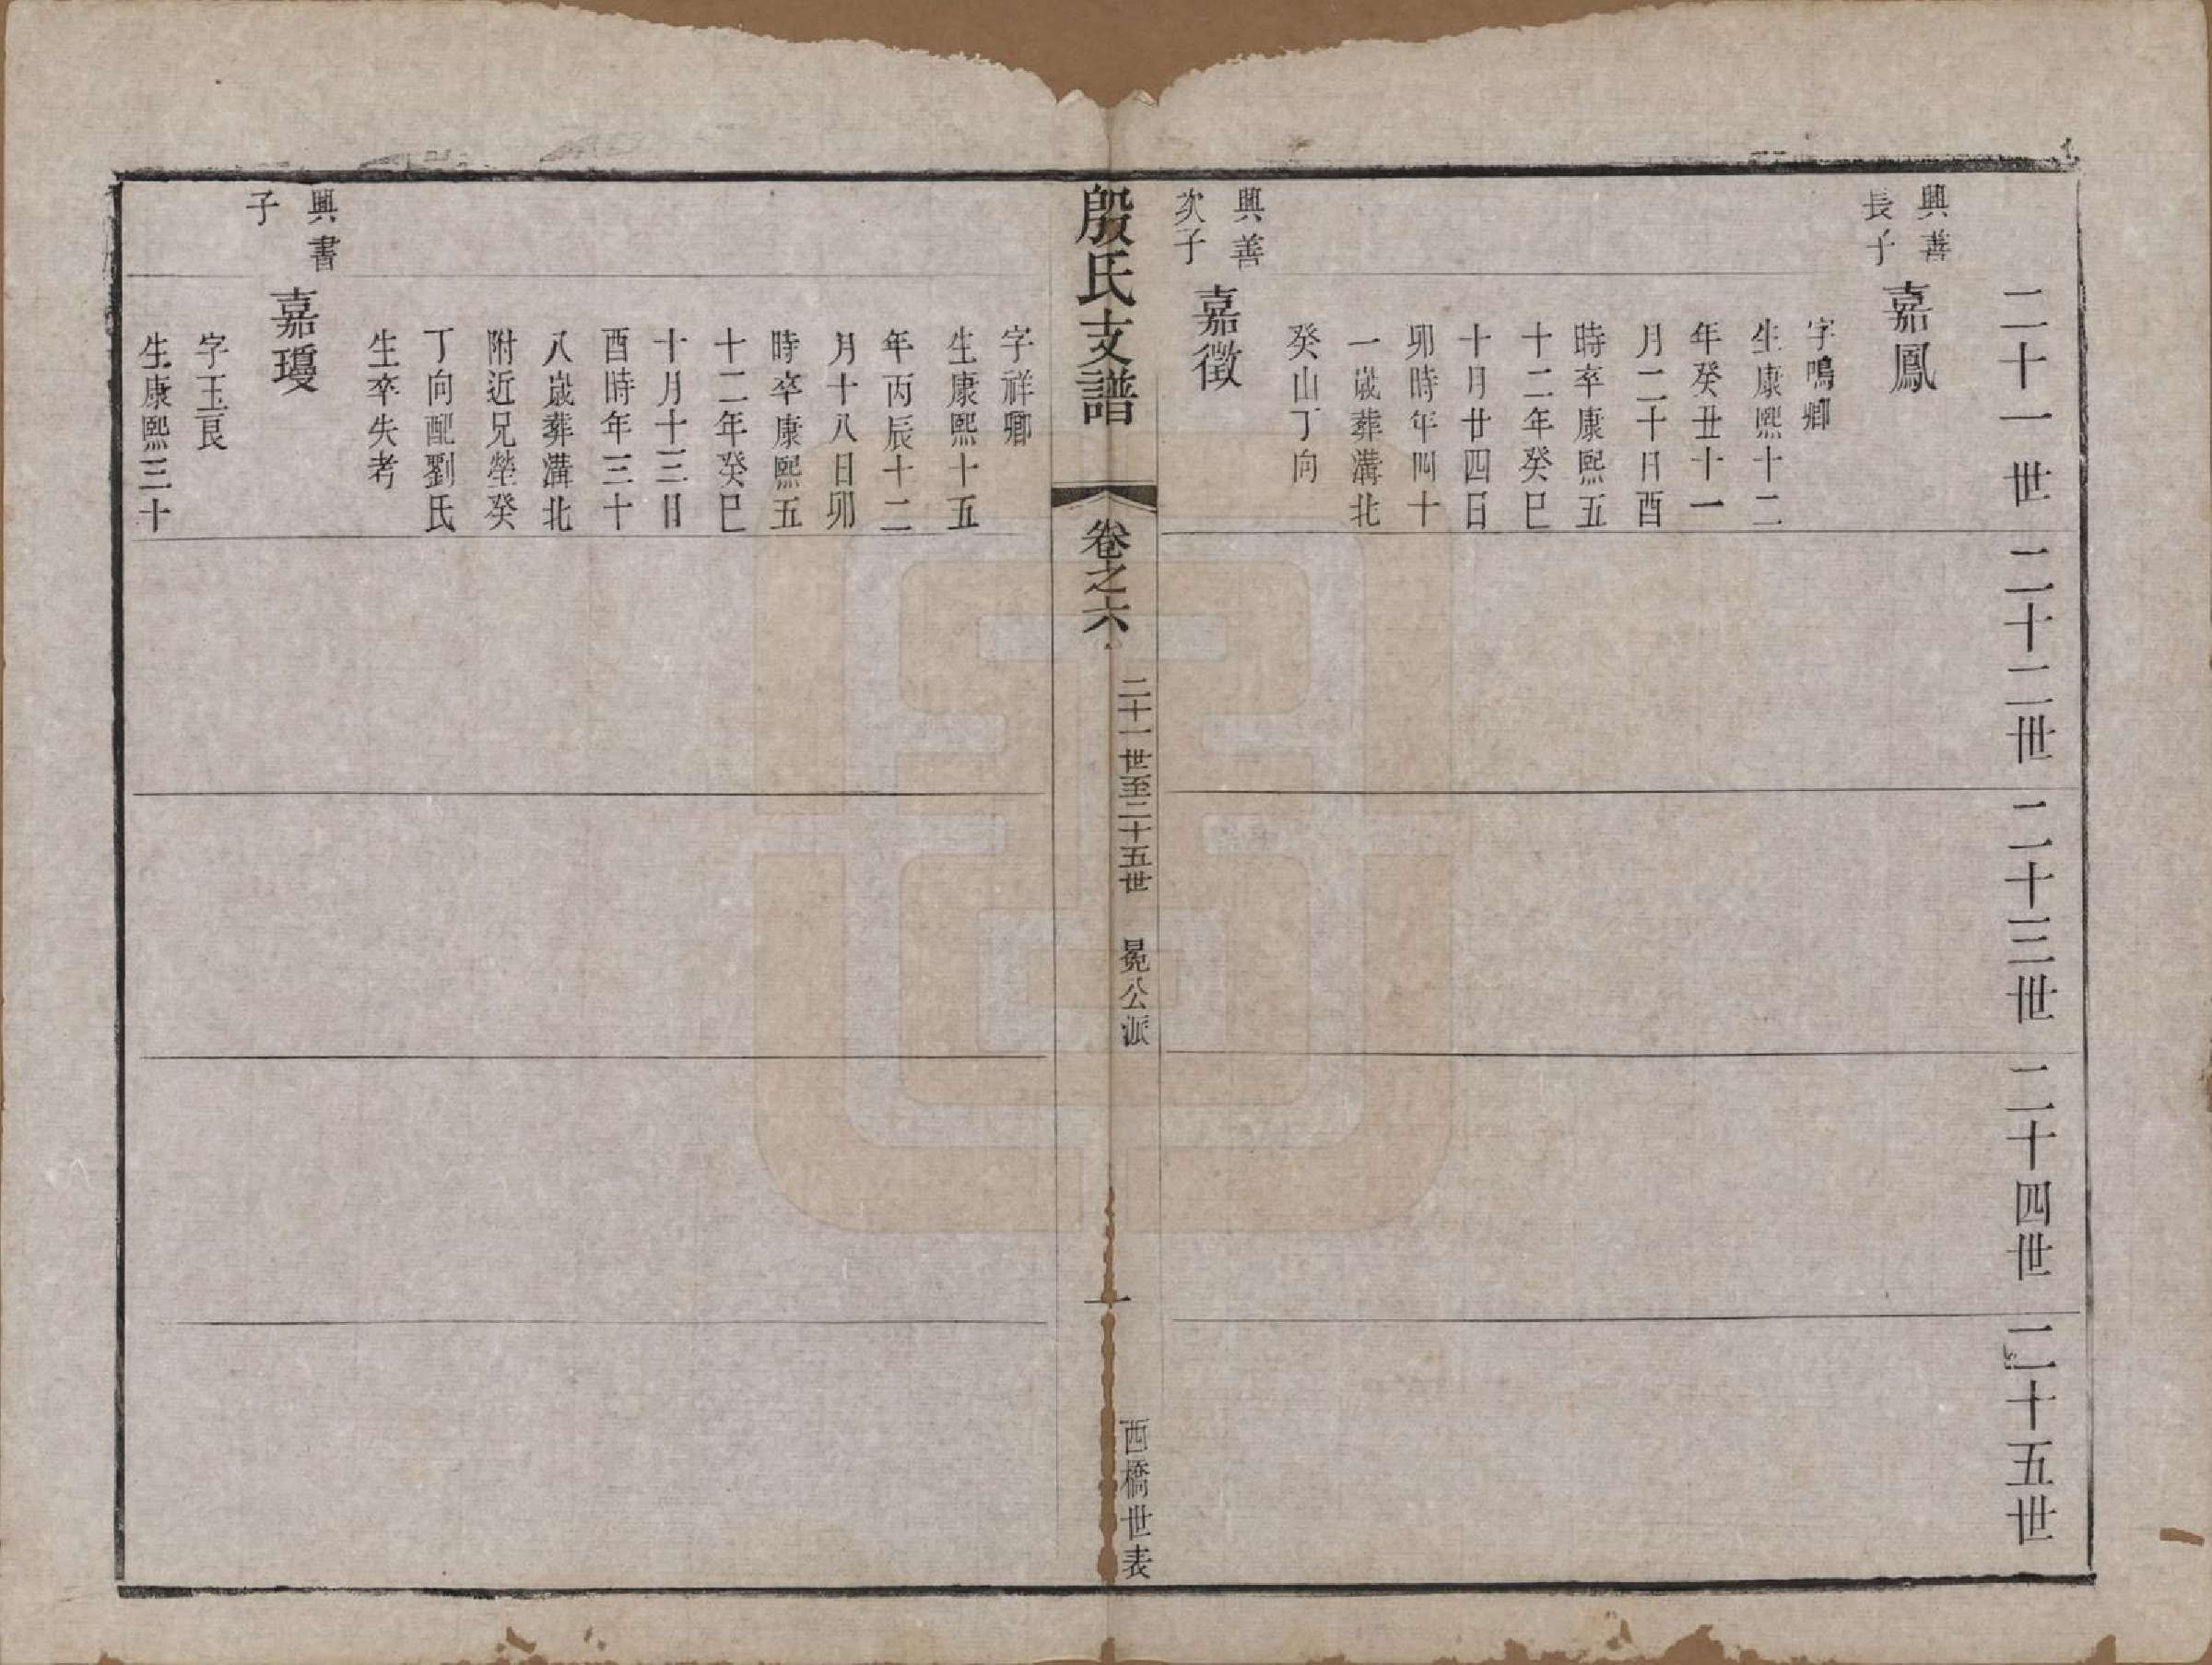 二十一世
二十二世
二十三世
二十四世
二十五世
興善
長子
嘉鳳
字鳴卿
生康熙十二
年癸丑十一
月二十日酉
時卒康熙五
十二年癸巳
十月廿四日
卯時年四十
一歲葬溝北
癸山丁向
興善
次子
嘉徵
殷氏支譜
卷之六
二十一世至二十五世
冕公派
一
西橋世表
字祥卿
生康熙十五
年丙辰十二
月十八日卯
時卒康熙五
十二年癸巳
十月十三日
酉時年三十
八歲葬溝北
附近兄塋癸
丁向配劉氏
生卒失考
興書
子
嘉瓊
字玉良
生康熙三十